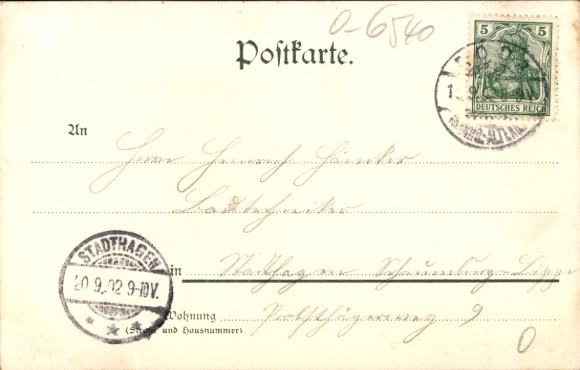 0-6540
Postkarte.
5 5
DEUTSCHES REICH
An
Herrn Heinrich
Bautechniker
STADTHAGEN
20.9.02 9-10V.
in Stadthagen Schaumburg-Lippe
Wohnung 9
(Straße und Hausnummer)
0